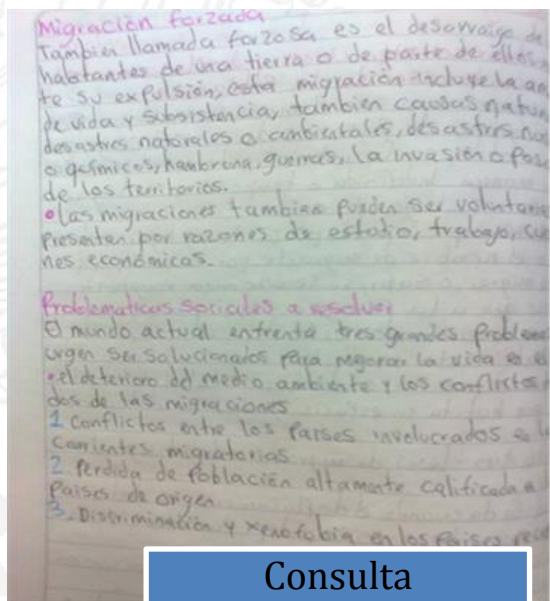 Migración forzada
Tambien llamada forzosa es el desarraigo de
habitantes de una tierra o de parte de ellos
te su expulsión, esta migración incluye la
de vida y subsistencia, tambien causas
desastres naturales o ambientales, desastres
o químicos, hambruna, guerras, la invasión o
de los territorios.
• las migraciones tambien pueden ser
presentan por razones de estudio, trabajo,
nes económicas.
Problematicas sociales a resolver
El mundo actual enfrenta tres grandes
urgen ser solucionados para mejorar la vida
• el deterioro del medio ambiente y los conflictos
dos de las migraciones
1 conflictos entre los países involucrados
corrientes migratorias
2 Perdida de población altamente calificada
Países de origen
3. Discriminación y xenofobia en los países
Consulta